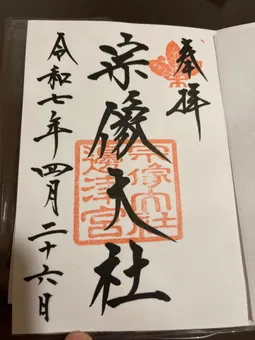 奉拝
宗像大社
宗像大社
邊津宮
令和七年四月二十六日